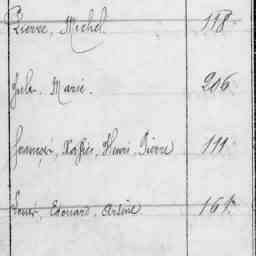 Pierre, Michel. 118.
Jules. Marie. 206.
François, Xavier, Henri, Pierre 111.
Louis, Edouard, Arsène 161.